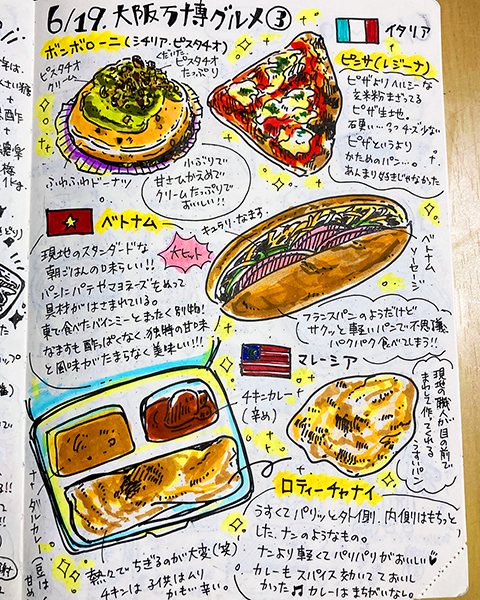 6/19. 大阪万博グルメ③
イタリア
ボンボローニ(シチリア・ピスタチオ)
ピスタチオ
クリーム
くだいた
ピスタチオ
たっぷり
ふわふわドーナツ
小ぶりで
甘さひかえめで
クリームたっぷりで
おいしい!!
ピンサ(レジーナ)
ピザよりヘルシーな
玄米粉まざってる
ピザ生地。
石窯い…?チーズ少ない
ピザというより
かためのパン…。
あんまり好きじゃなかった
ベトナム
現地のスタンダードな
朝ごはんの味らしい!!
パンにパテやマヨネーズをぬって
具材がはさまれている。
東で食べたバインミーとまたく別物!
なますも酢っぱくなく独特の甘味
と風味がたまらなく美味しい!!!
大ヒット
キュウリ・なます
ベトナム
ソーセージ
フランスパンのようだけど
サクッと軽いパンで不思議
パクパク食べてしまう!!
マレーシア
チキンカレー
(辛め)
現地の職人が目の前で
まわして作ってくれる
うすいパン
ロティーチャナイ
うすくてパリッと外側、内側はもちっと
した、ナンのようなもの。
ナンより軽くてパリパリがおいしい
カレーもスパイス効いてておいし
かった♫カレーはまちがいなし。
熱々でちぎるのが大変(笑)
チキンは子供はムリ
かも!!辛い。
ダルカレー